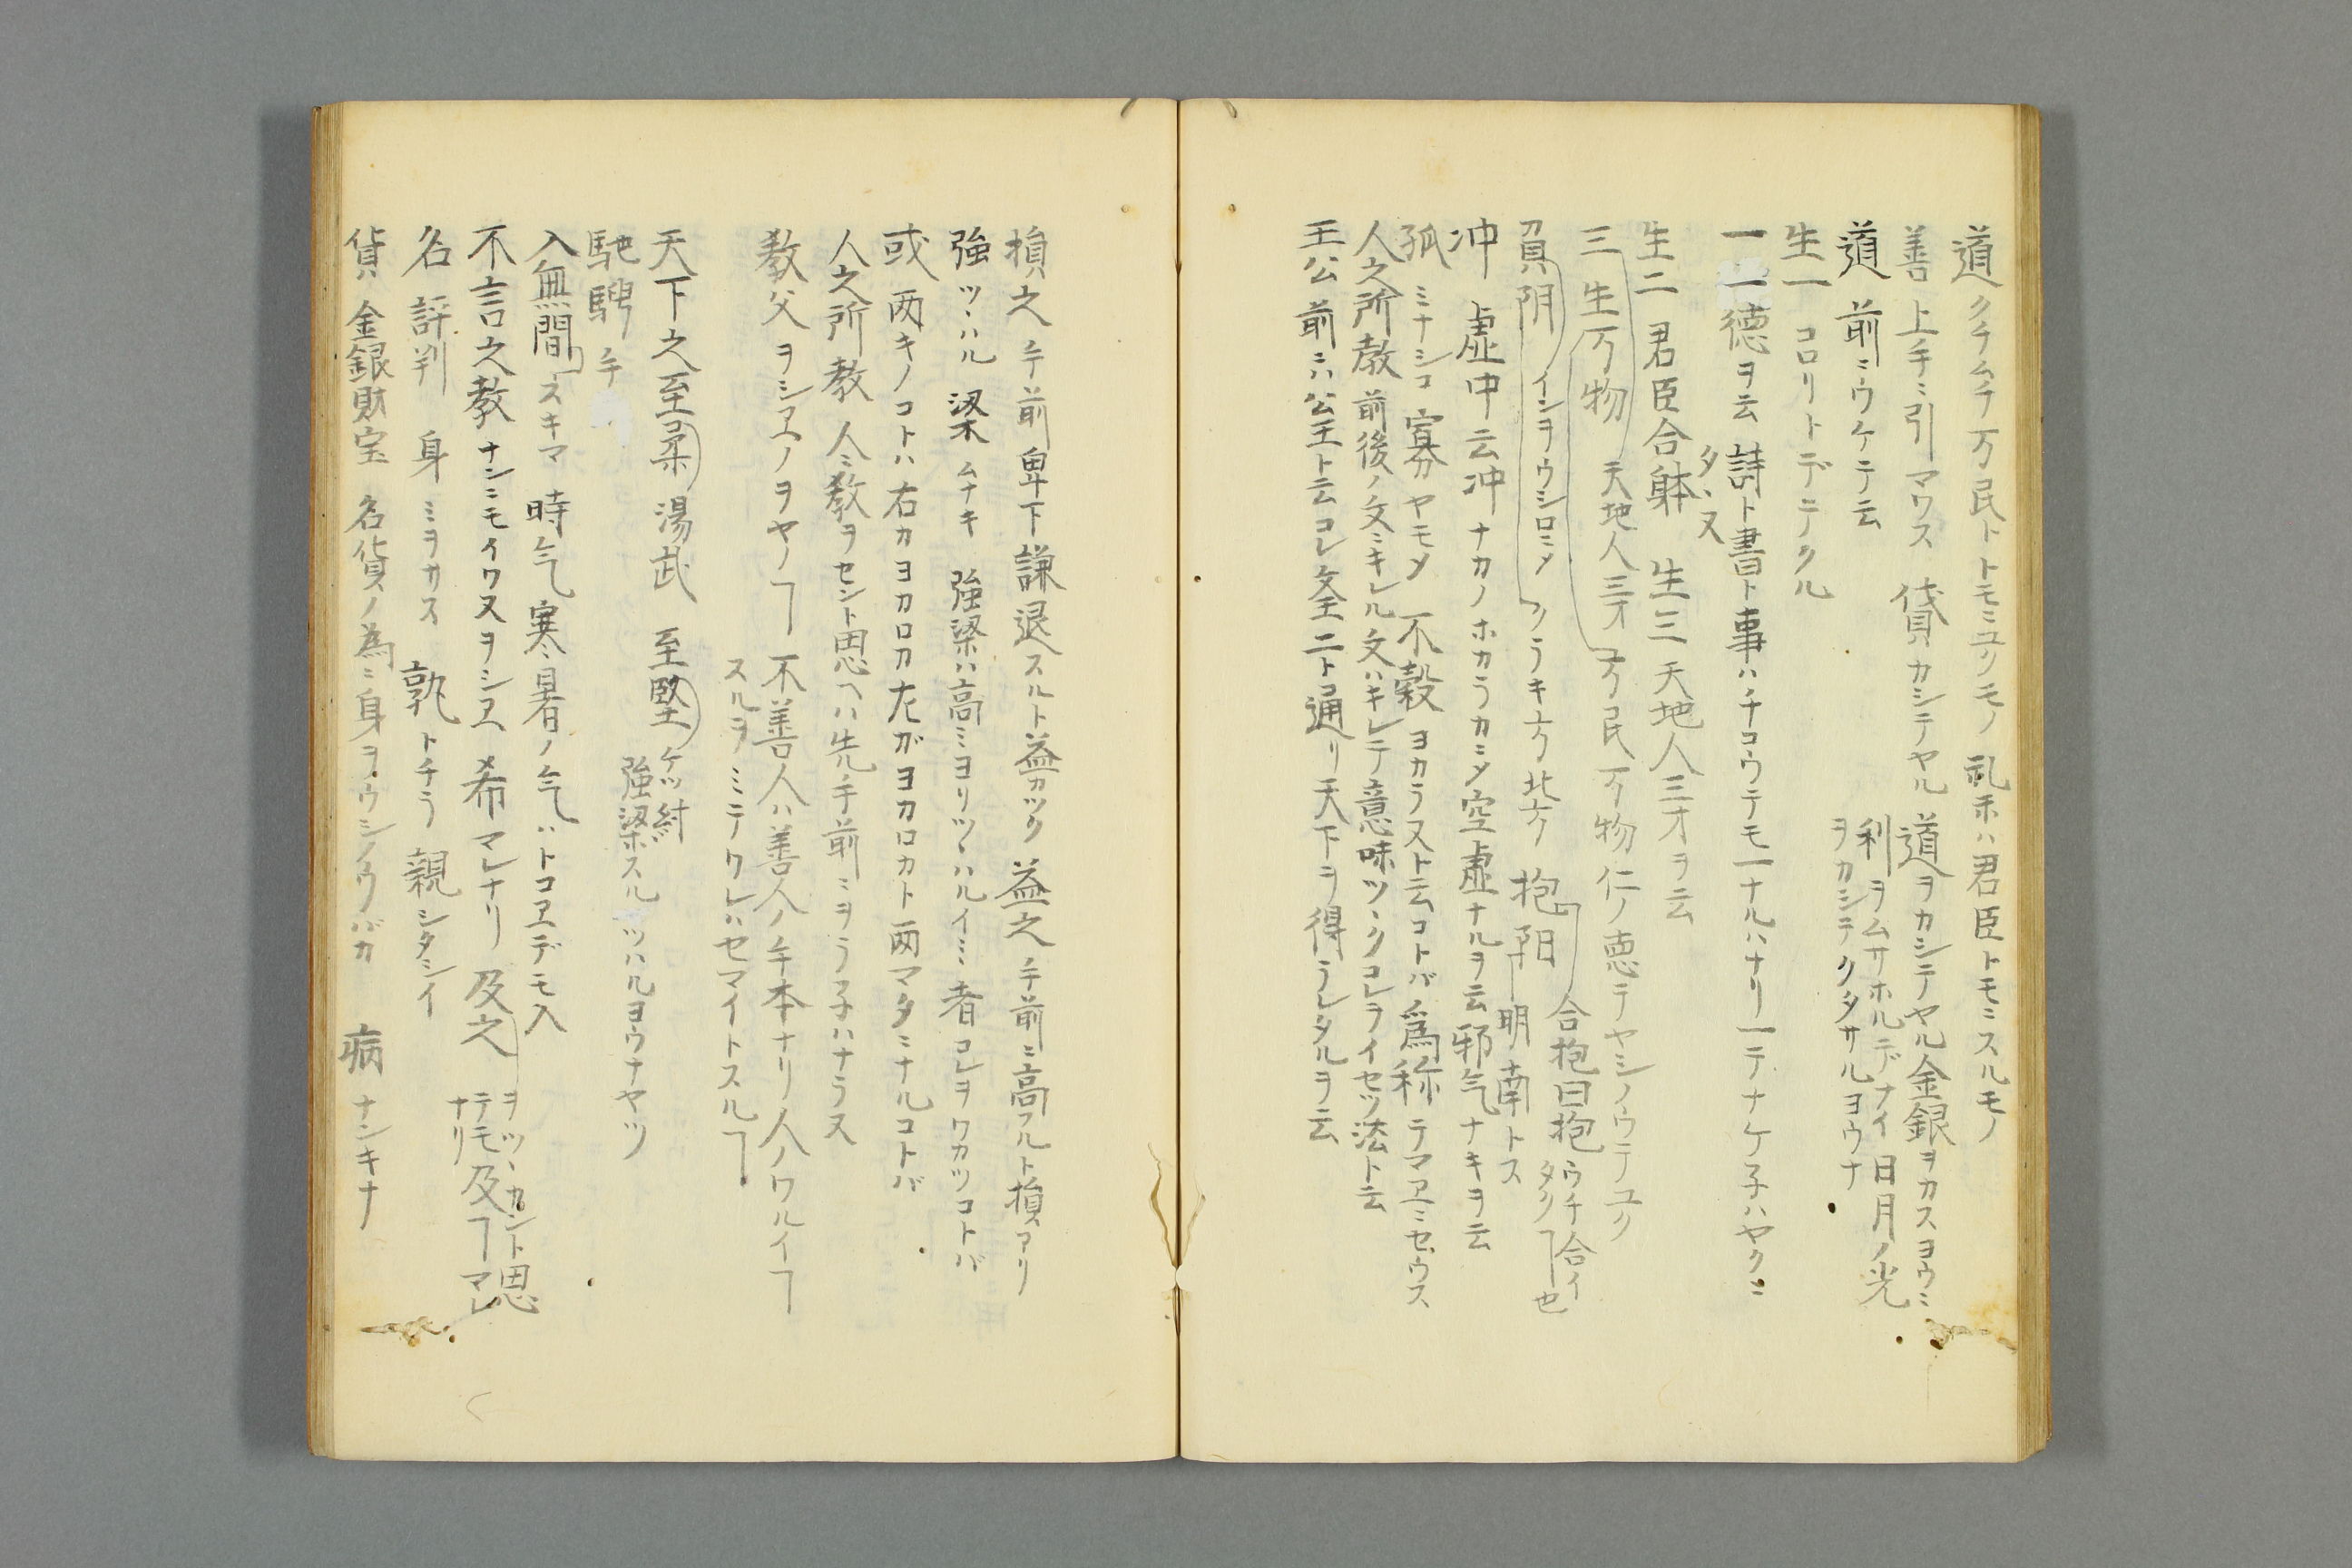 道クチムチ万民トトモミユクモノ 礼ホハ君臣トモミスルモノ
善 上手ミ引マワス 貸カシテヤル 道ヲカシテヤル金銀ヲカスヨウミ
利ヲムサホルデナイ日月ノ光
ヲカシテクタサルヨウナ
道 前ミウケテ云
生一 コロリトデテクル
一 一徳ヲ云 詩ト書ト事ハチコウテモ一ナルハナリ一テナケ子ハヤクミ
タヽヌ
生二 君臣合躰 生三 天地人三才ヲ云
三生万物 天地人三才 万民万物仁ノ徳テヤシノウテユク
負阴 インヲウシロミメ クラキ方北方 抱阳 明南トス
合抱曰抱 ウチ合イ
タクヿ也
冲 虚中云冲 ナカノホカラカミメ空虚ナルヲ云邪气ナキヲ云
孤 ミナシコ 寡ヤモメ 不穀 ヨカラヌト云コトバ 為称 テマヱミセウス
人之所教 前後ノ文ミキレル文ハキレテ意味ツヽクコレヲイセツ法ト云
王公 前ミハ公王ト云コレ文王二ト通リ天下ヲ得ラレタルヲ云
損之 手前卑下謙退スルト益カツク 益之 手前ミ高フルト損アリ
強 ツヽハル 梁 ムナキ 強梁ハ高ミヨリツヽハルイミ 者 コレヲワカツコトバ
或 両キノコトハ右カヨカロカ左ガヨカロカト両マタミナルコトバ
人之所教 教 人ミ教ヲセント思ヘハ先手前ミヲラ子ハナラヌ
教父 ヲシヱノヲヤノヿ 不善人ハ善人ノ手本ナリ人ノワルイヿ
スルヲミテワレハセマイトスルヿ
天下之至柔 湯武 至堅 ケツ紂
強梁スル ツハルヨウナヤツ
馳騁 手
入無間 スキマ 時气寒暑ノ气ハトコヱデモ入
不言之教 ナンミモイワヌヲシヱ 希マレナリ 及之 ヲツヽカント思
テモ及ヿマレ
ナリ
名 評判 身 ミヲカス 孰 トチラ 親 シタシイ
貨 金銀財宝 名貨ノ為ミ身ヲウシノウバカ 病 ナンキナ